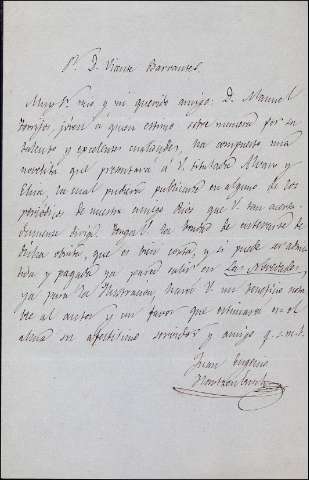 Sr. D. Vicente Barrantes.
Muy Sr. mio y mi querido amigo: D. Manuel
Torrijos, jóven á quien estimo sobre manera por su
talento y excelentes cualidades, ha compuesto una
novelita que presentará á V. titulada Alvaro y
Elvira, la cual pudiera publicarse en alguno de los
periódicos de nuestro amigo Rios que V. tan acerta-
damente dirige. Tenga V. la bondad de enterarse de
dicha obrita, que es bien corta, y si puede ser admi-
tida y pagada ya para salir en Las Novedades,
ya para la Ilustracion, hará V. un beneficio nota-
ble al autor y un favor que estimará en el
alma su afectísimo servidor y amigo q. s. m. b.
Juan Eugenio
Hartzenbusch